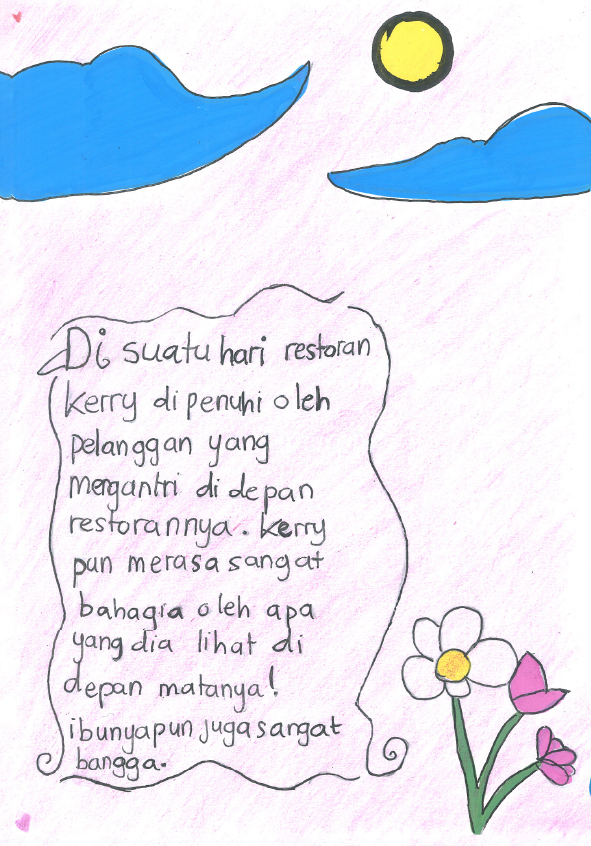 Di suatu hari restoran
kerry di penuhi oleh
pelanggan yang
mengantri di depan
restorannya. kerry
pun merasa sangat
bahagia oleh apa
yang dia lihat di
depan matanya!
ibunyapun juga sangat
bangga.